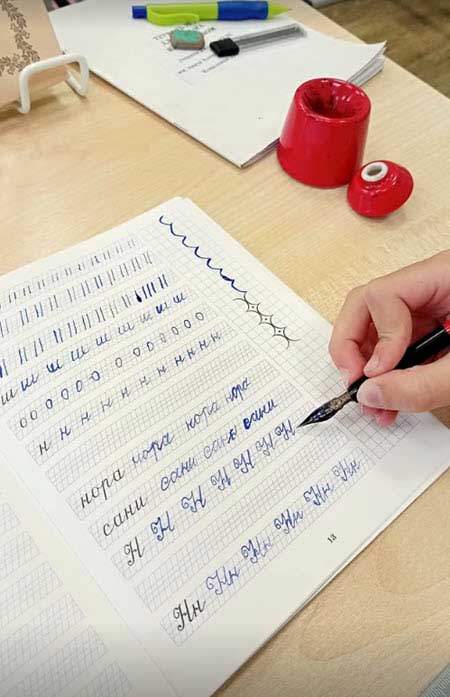 ш ш ш ш ш ш ш ш
о о о о о о о о о о о о
н н н н н н н н н н
нора нора нора нора
сани сани сани сани
Н Н Н Н Н Н Н
Нн Нн Нн Нн Нн Нн
13